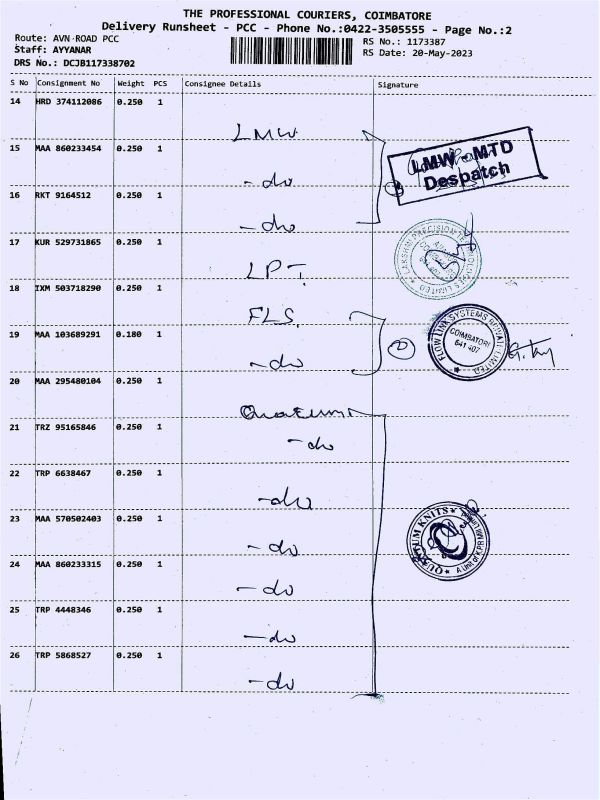 THE PROFESSIONAL COURIERS, COIMBATORE
Delivery Runsheet - PCC - Phone No.:0422-3505555 - Page No.:2
Route: AVN ROAD PCC
RS No.: 1173387
Staff: AYYANAR
RS Date: 20-May-2023
DRS No.: DCJB117338702
S No Consignment No Weight PCS Consignee Details Signature
14 HRD 374112086 0.250 1
LMW
15 MAA 860233454 0.250 1
LMW-MTD
Despatch
-do
16 RKT 9164512 0.250 1
-do
17 KUR 529731865 0.250 1
LPT
18 IXM 503718290 0.250 1
FLS
FLOW LINK SYSTEMS PRIVATE LIMITED
COIMBATORE
641 407
19 MAA 103689291 0.180 1
-do
20 MAA 295480104 0.250 1
21 TRZ 95165846 0.250 1
-do
22 TRP 6638467 0.250 1
-do
23 MAA 570502403 0.250 1
QUANTUM KNITS
-do
24 MAA 860233315 0.250 1
-do
25 TRP 4448346 0.250 1
-do
26 TRP 5868527 0.250 1
-do